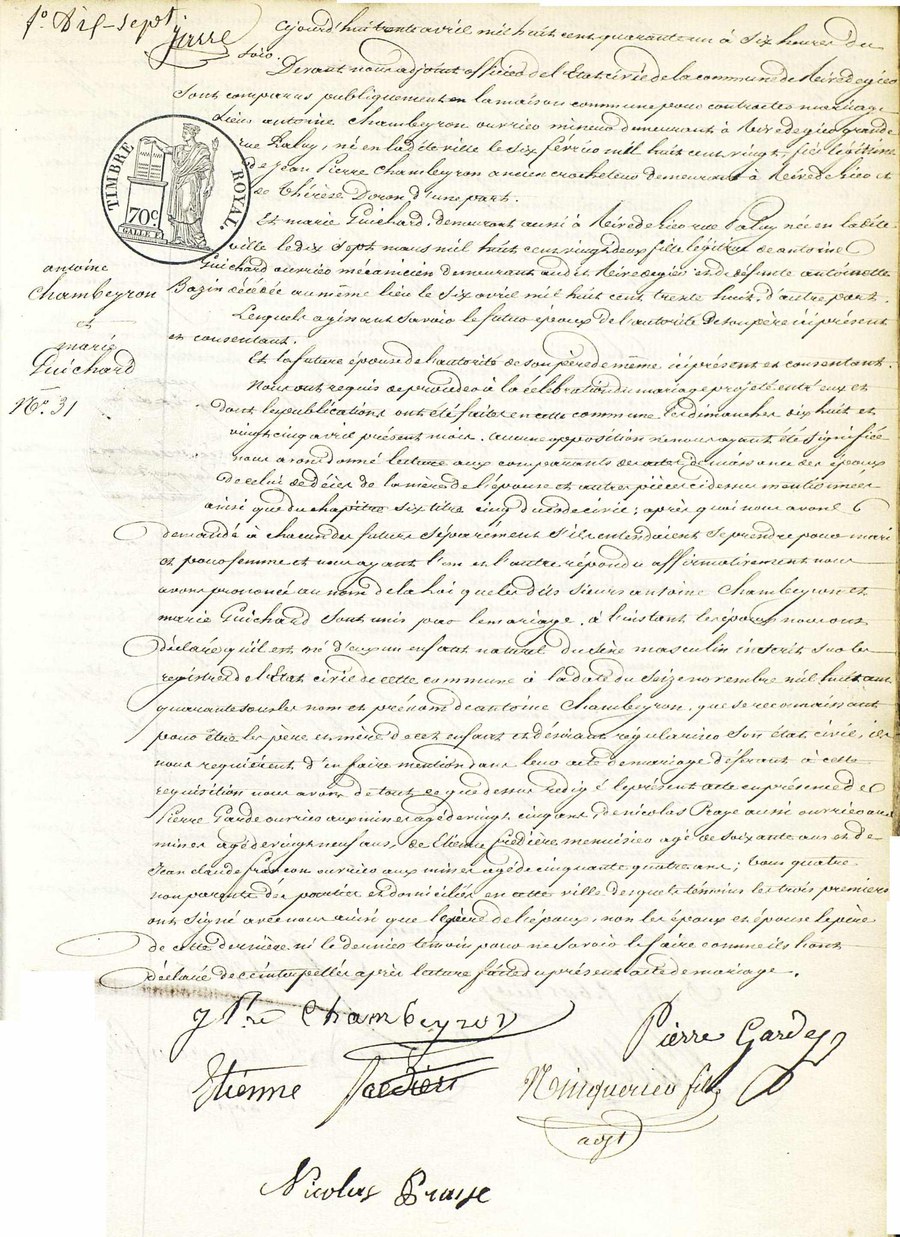 fo Dix-Sept
Cejourd'hui trente avril mil huit cent quarante un à six heures du
soir.
Devant nous adjoint officier de l'Etat civil de la commune de Rive de gier
sont comparus publiquement en la maison commune pour contracter mariage
Sieur antoine Chambeyron ouvrier mineur demeurant à Rive de gier grande
rue Paluy, né en ladite ville le six février mil huit cent vingt, fils légitime
TIMBRE ROYAL.
70c
GALLE F.
de Jean Pierre Chambeyron ancien crocheteur demeurant à Rive de Gier et
de Thérèse Doron d'une part.
Et marie Guichard, demeurant aussi à Rive de Gier rue Paluy née en la dite
ville le dix sept mars mil huit cent vingt deux fille légitime de antoine
Guichard ouvrier mécanicien demeurant audit Rive de gier et de défunte antoinette
Bazin décédée au même lieu le six avril mil huit cent trente huit, d'autre part.
antoine
Chambeyron
et
marie
Guichard
No. 31
Lesquels agissant savoir le futur époux de l'autorité de son père ici présent
et consentant.
Et la future épouse de l'autorité de son père de même ici présent et consentant.
Nous ont requis de procéder à la célébration du mariage projeté entr'eux et
dont les publications ont été faites en cette commune les dimanches dix huit et
vingt cinq avril présent mois. aucune opposition ne nous ayant été signifiée
nous avons donné lecture aux comparants des actes de naissance des époux
de celui de décès de la mère de l'épouse et autres pièces ci dessus mentionnées
ainsi que du chapitre six titre cinq du code civil; après quoi nous avons
demandé à chacun des futurs séparément s'ils entendaient se prendre pour mari
et pour femme et nous ayant l'un et l'autre répondu affirmativement nous
avons prononcé au nom de la loi que les dits sieurs antoine Chambeyron et
marie Guichard sont unis par le mariage. à l'instant les époux nous ont
déclaré qu'il est né d'eux un enfant naturel du sexe masculin inscrit sur les
registres de l'Etat civil de cette commune à la date du seize novembre mil huit cent
quarante sous les nom et prénom de antoine Chambeyron, que se reconnaissant
pour être les père et mère de cet enfant et désirant régulariser son état civil, ils
nous requièrent d'en faire mention dans leur acte de mariage. déférant à cette
requisition nous avons de tout ce que dessus rédigé le présent acte en présence de
Pierre Garde ouvrier aux mines agé de vingt cinq ans De nicolas aussi ouvrier aux
mines agé de vingt neuf ans, de Etienne menuisier agé de soixante ans et de
Jean claude françon ouvrier aux mines agé de cinquante quatre ans; tous quatre
non parents des parties et domiciliés en cette ville desquels témoins les trois premiers
ont signé avec nous ainsi que le père de l'époux, non les époux et épouse le père
de cette dernière ni le dernier témoin pour ne savoir le faire comme ils l'ont
déclaré de ce interpellés après lecture faite du présent acte de mariage.
J Pre Chambeyron
Pierre Garde
Etienne
fils
adjt
Nicolas